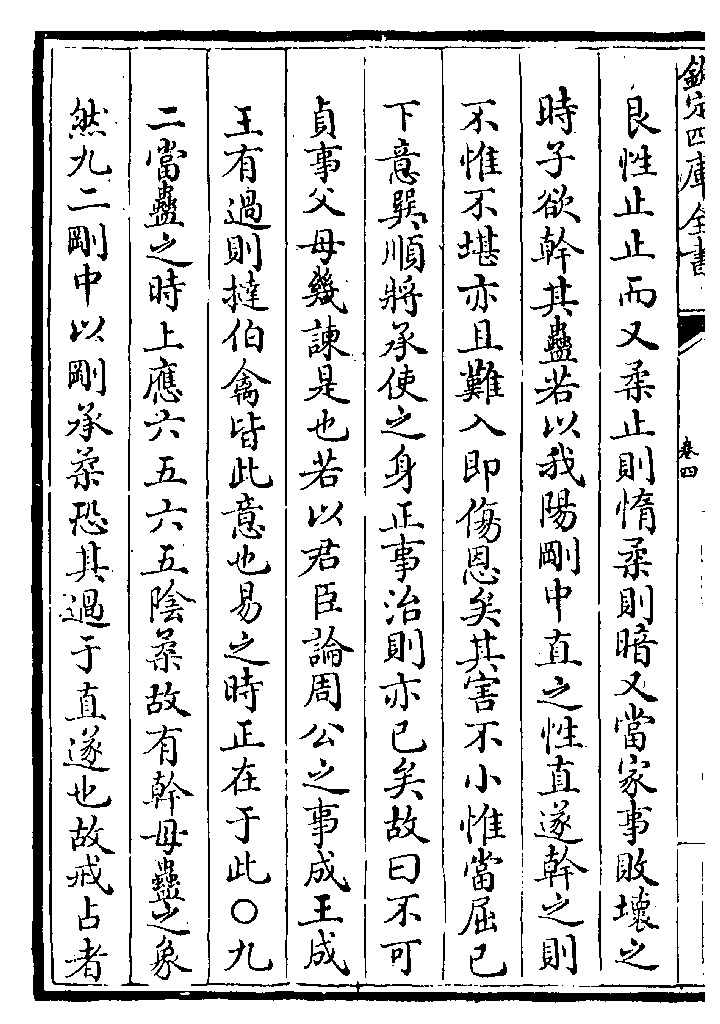 欽定四庫全書
卷四
艮性止止而又柔止則惰柔則暗又當家事敗壞之
時子欲幹其蠱若以我陽剛中直之性直遂幹之則
不惟不堪亦且難入即傷恩矣其害不小惟當屈已
下意巽順將承使之身正事治則亦已矣故曰不可
貞事父母幾諫是也若以君臣論周公之事成王成
王有過則撻伯禽皆此意也易之時正在于此○九
二當蠱之時上應六五六五陰柔故有幹母蠱之象
然九二剛中以剛承柔恐其過于直遂也故戒占者